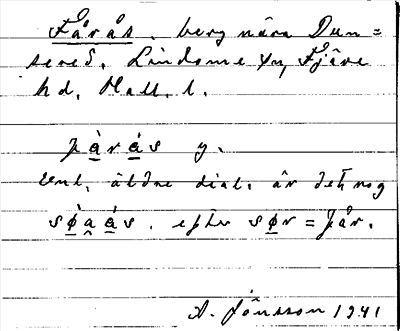 Fårås. berg nära Dun=
sered, Lindome sn, Fjäre
hd, Hall. l.
fà̱rá̱s y.
Enl. äldre dial. är det nog
sø̱̀a̯á̱s. efter sø̱r = får.
A. Jönsson 1941